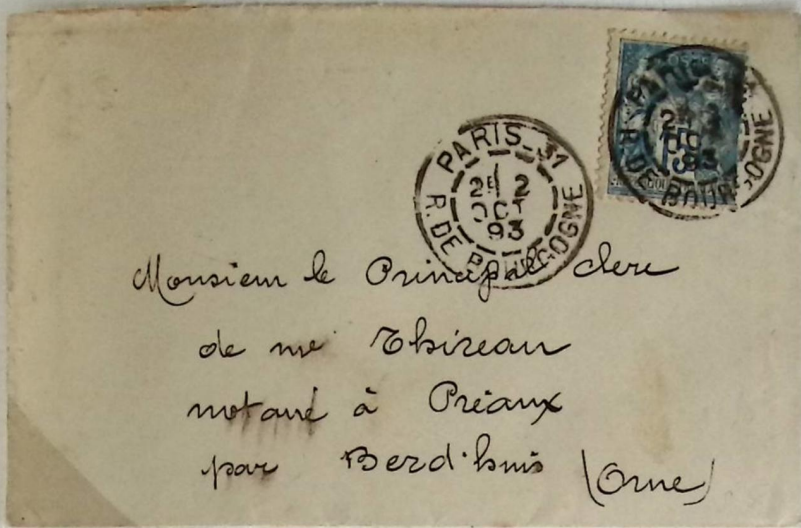 PARIS_31
R. DE BOURGOGNE
2E 2
OCT
93
PARIS
2E 2
93
R. DE BOURGOGNE
15
Monsieur le Principal clerc
de me Thireau
notaire à Préaux
par Berd'huis (Orne)